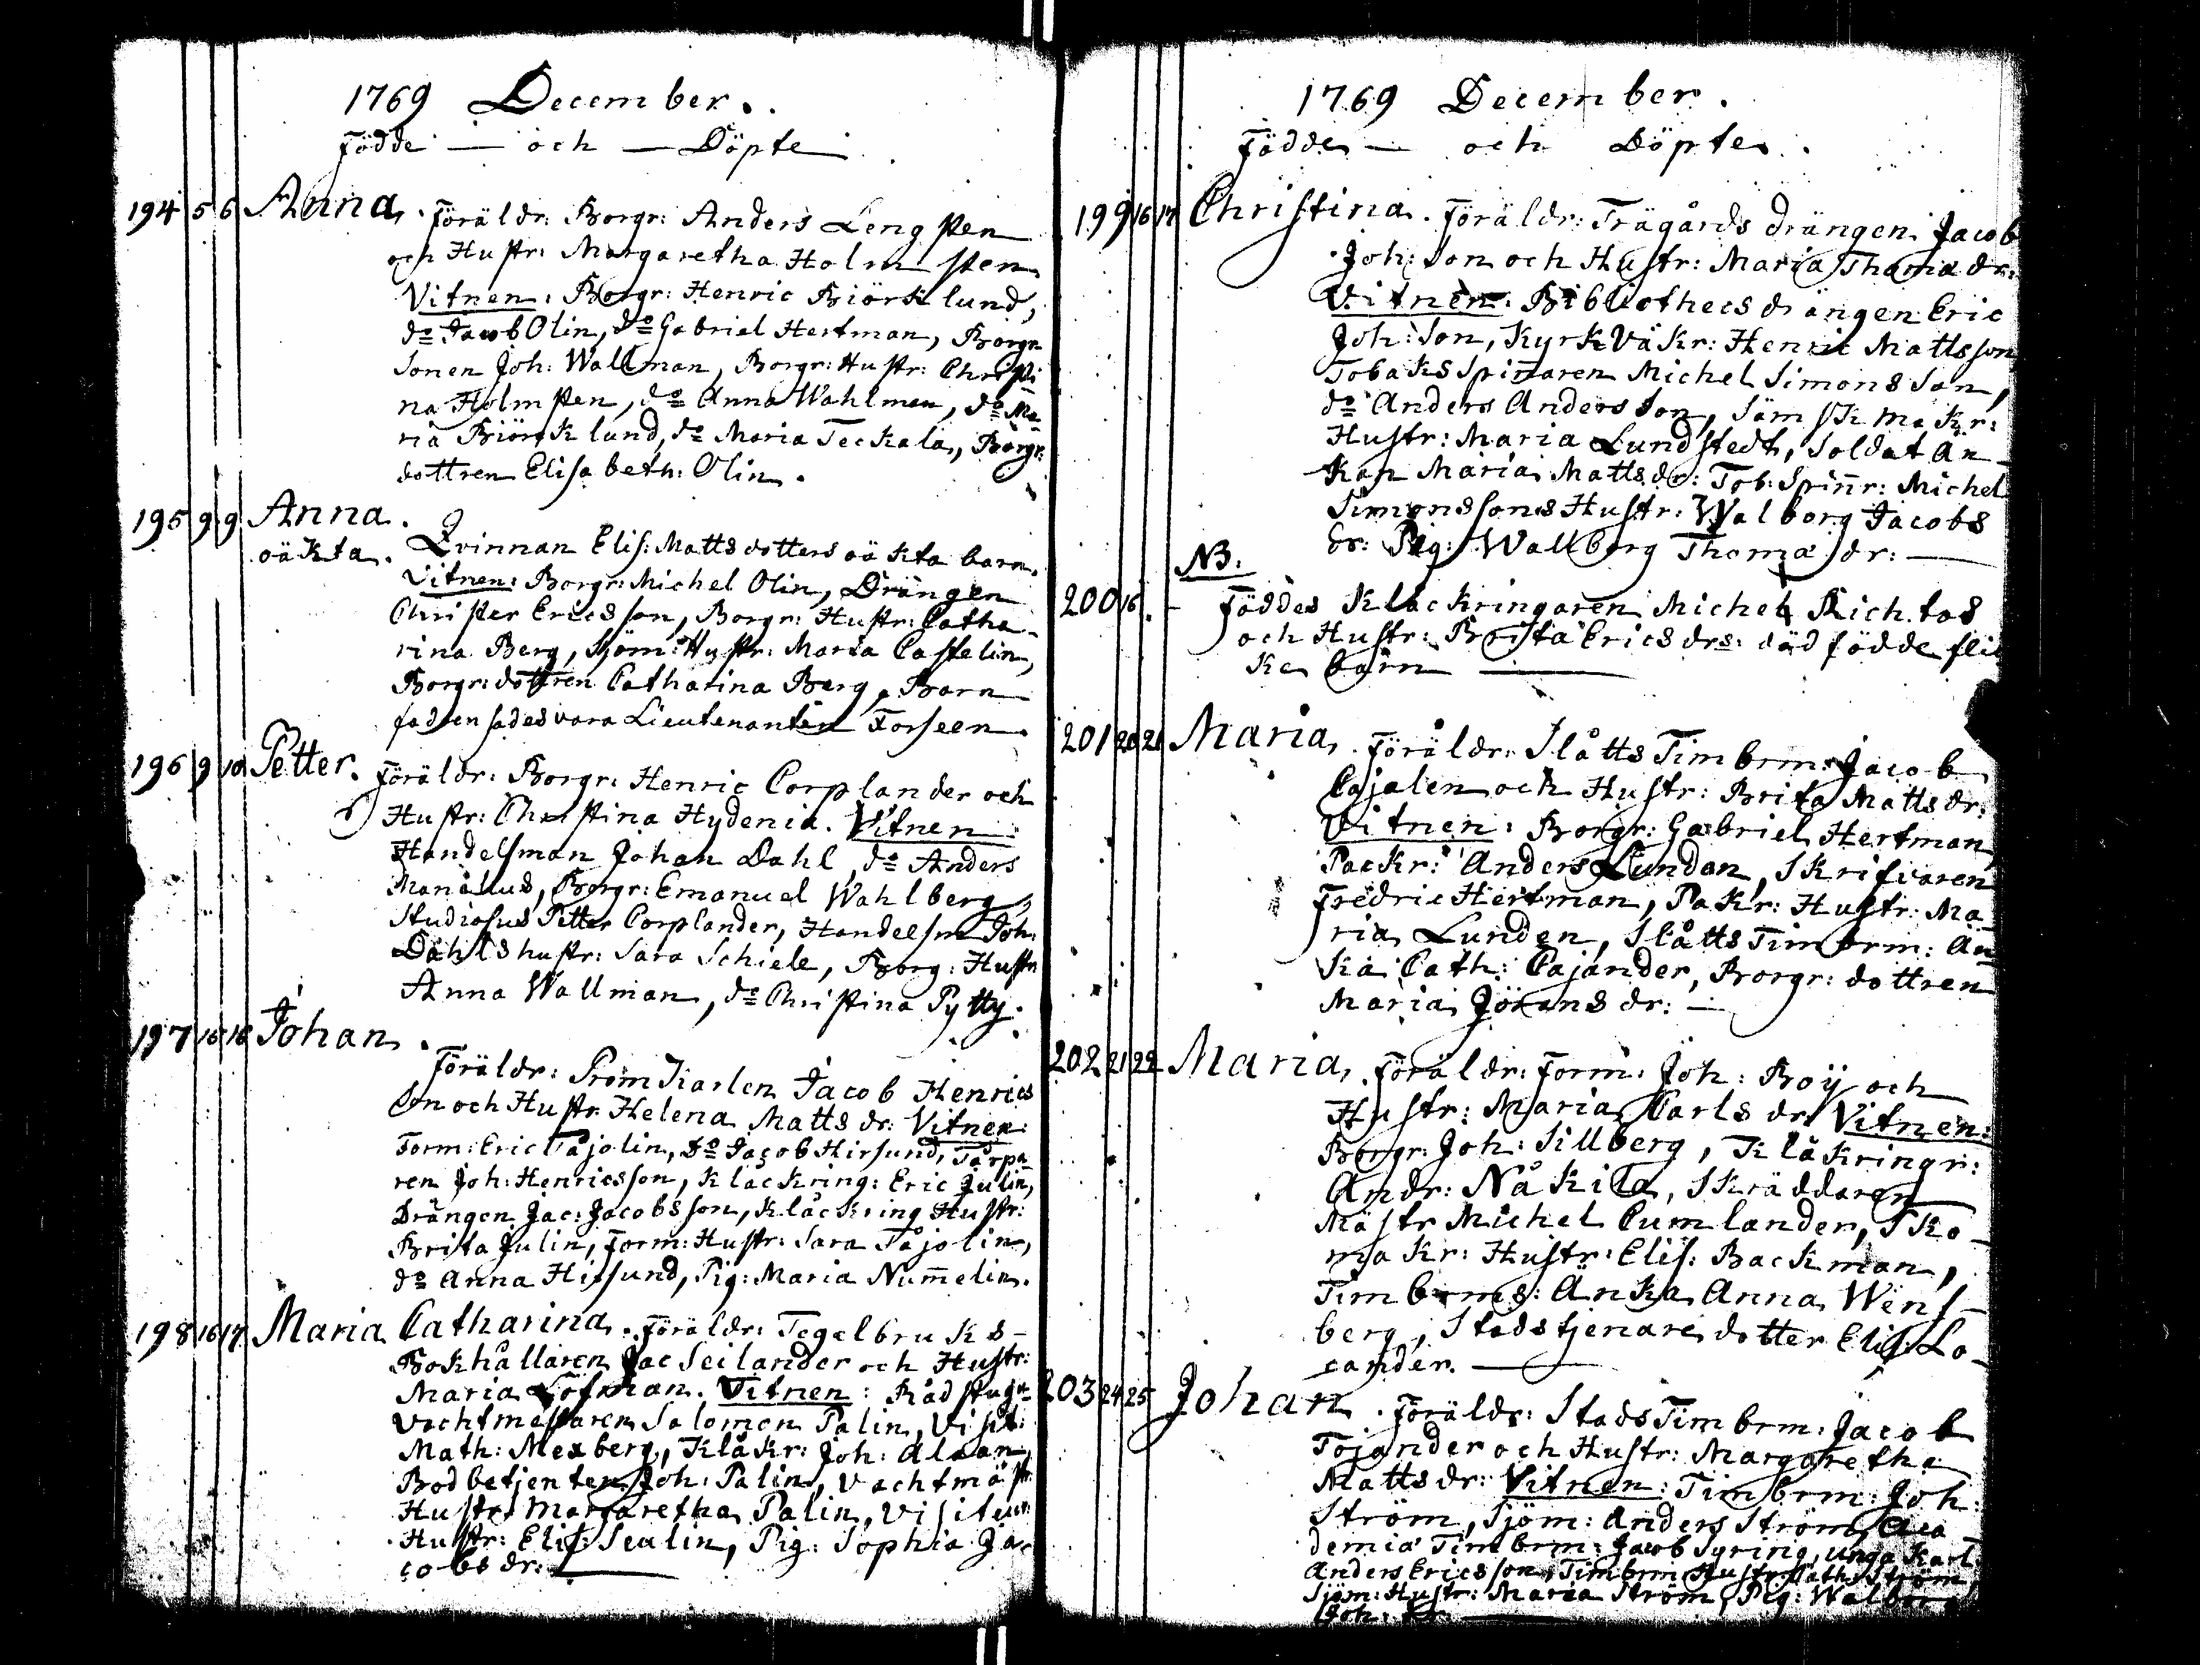 1769 December.
Födde — och — Döpte
194 5 6 Anna. Föräldr: Borgr: Anders Lengsten
och Hustr: Margaretha Holmsten
Vitnen: Borgr: Henric Biörklund,
do Jacob Olin, do Gabriel Hertman, Borgr
Sonen Joh: Wallman, Borgr: Hustr: Christi
na Holmsten, do Anna Wahlman, do Ma
ria Biörklund, do Maria Teckala, Borgr:
dottren Elisabeth: Olin.
195 9 9 Anna.
oäkta. Qvinnan Elis: Matts dotters oäkta barn.
Vitnen: Borgr: Michel Olin, Drängen
Christer Ericsson, Borgr: Hustr: Catha-
rina Berg, Sjöm: Hustr: Maria Castelin,
Borgr: dottren Catharina Berg, Barn
fadren sades vara Lieutenanten Forseen.
196 9 10 Petter. Föräldr: Borgr: Henric Corplander och
Hustr: Christina Hydenia. Vitnen
Handelsman Johan Dahl, do Anders
Manellus, Borgr: Emanuel Wahlberg,
Studiosus Petter Corplander, Handelsm Joh:
Dahls hustr: Sara Schiele, Borg: Hustr
Anna Wallman, do Christina Pytty.
197 16 16 Johan.
Föräldr: Prom Karlen Jacob Henrics
Son och Hustr: Helena Matts dr: Vitnen:
Form: Eric Tåjolin, Do Jacob Hirsund, Tårpa
ren Joh: Henricsson, Klåckring: Eric Julin,
Drängen Jac: Jacobsson, Klåckring Hustr:
Brita Julin, Form: Hustr: Sara Tåjolin,
do Anna Hirsund, Pig: Maria Num̅elin.
198 16 17 Maria Catharina. Föräldr: Tegelbruks-
Bokhållaren Jac Seilander och Hustr:
Maria Löfman. Vitnen: Rådstugu
Vachtmestaren Salomon Palin, Visit:
Math: Mexberg, Klåkr: Joh: Alman,
Bodbetjenten Joh: Palin, Vachtmäst
Hustr: Margaretha Palin, Visiteur:
Hustr: Elis: Sealin, Pig: Sophia Ja-
cobs dr:
1769 December.
Födde — och Döpte.
199 16 17 Christina. Föräldr: Trägårds drängen Jacob
Joh: Son och Hustr: Maria Thomæ dr:
Vitnen: Bibliothecs drängen Eric
Joh: Son, Kyrk Väkr: Henric Mattsson
Tobaks Spin̅aren Michel Simons Son,
do Anders Andersson, Sämskmakr:
Hustr: Maria Lundstedt, Soldat Än-
kan Maria Matts dr: Tob: Spin̅r: Michel
Simonssons Hustr: Walborg Jacobs
dr: Pig: Wallborg Thomæ dr: —
NB.
200 16 - Föddes Klåckringaren Michel Rich.tas
och Hustr: Brita Erics drs: död födde flic
ke barn —
201 20 21 Maria. Föräldr: Slåtts Timbrm: Jacob
Cajalen och Hustr: Brita Matts dr:
Vitnen: Borgr: Gabriel Hertman,
Packr: Anders Lundan, Skrifvaren
Fredric Hertman, Pakr: Hustr: Ma
ria Lunden, Slåtts Timbrm: Än
ka Cath: Cajander, Borgr: dottren
Maria Jörans dr: —
202 21 22 Maria. Föräldr: Form: Joh: Roÿ och
Hustr: Maria Carls dr Vitnen:
Borgr: Joh: Sillberg, Klåkringr:
Andr: Nåkila, Skräddaren
Mästr Michel Cumlander, Sko-
makr: Hustr: Elis: Backman,
Timbrms: Änka Anna Wens-
berg, Stadstjenare dotter Elis: Lo-
cander. —
203 24 25 Johan. Föräldr: Stads Timbrm: Jacob
Tojander och Hustr: Margaretha
Matts dr: Vitnen: Timbrm: Joh:
Ström, Sjöm: Anders Ström, Aca
demiæ Timbrm: Jacob Syring, unga Karl:
Anders Ericsson, Timbrm Hustr: Cath: Ström,
Sjöm: Hustr: Maria Ström, Pig: Walborg
Joh: dr: —